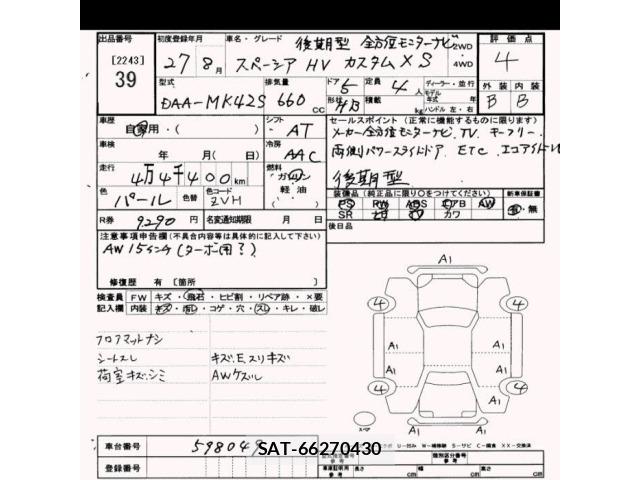 出品番号 初度登録年月 車名・グレード 後期型 全方位モニターナビ 2WD 評価点
[2243] 27年8月 スペーシア HV カスタム XS 4WD 4
39 型式 排気量 ドア 5 定員 4人 ディーラー・並行 外装 内装
DAA-MK42S 660 cc 形状 積載 kg モデル 年式 年 ハンドル 左・右 B B
車歴 自家用・( ) シフト AT セールスポイント (正常に機能するものに限ります)
メーカー全方位モニターナビ、TV、キーフリー、
車検 年 月(日) 冷房 AAC 両側パワースライドドア、ETC、エコアイドル
走行 4万4千400km 燃料 ガソリン 軽油 ( ) 後期型
色 パール 色替 色コード ZVH 装備品(純正品に限り○をつけてください) 新車保証書
PS PW ABS エアB AW 有・無
R券 9290円 名変通知期限 月 日 SR カワ
注意事項申告欄(不具合内容等は具体的に記入して下さい) 後日品
AW15インチ(ターボ用?)
修復歴 有 [箇所 ]
A1
検査員 FW キズ・飛石・ヒビ割・リペア跡・×要
記入欄 内装 キズ・汚し・コゲ・穴・スレ・キレ・破し
4 4
フロアマットナシ
A1 A1
シートスレ キズ、E、スリキズ
A1 A1
荷室キズ・シミ AWケズレ
4 4
A1 A1
A1
スペア
車台番号 598049
SAT-66270430
登録番号
車庫証明用 参考 長さ cm 幅 cm 高さ cm